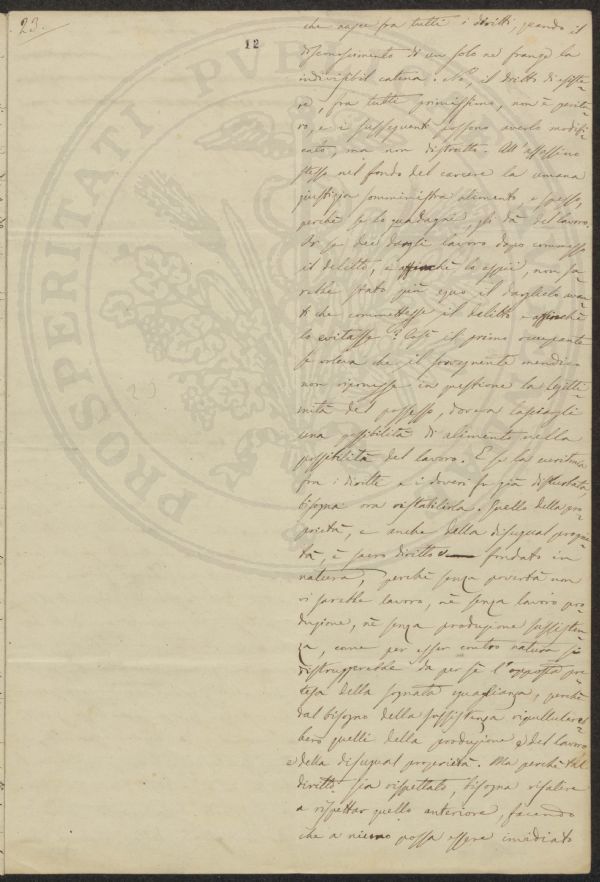 23.
12
che nasce fra tutti i diritti, quando il
disconoscimento di un solo ne frange la
indivisibil catena. No, il dritto di esiste=
re, fra tutti primissimo, non è peritu=
ro, e i susseguenti possono averlo modifi=
cato, ma non distrutto. All'assassino
stesso nel fondo del carcere la umana
giustizia somministra alimento, e spesso,
perchè se lo guadagni, gli dà del lavoro.
Or se dee darsi lavoro dopo commesso
il delitto, e affinchè lo espii, non sa=
rebbe stato più equo il darglielo avan=
ti che commettesse il delitto e affinchè
lo evitasse? Così il primo occupante
se voleva che il sorvegnente mendico
non riponesse in questione la legitti=
mità del possesso, doveva lasciargli
una possibilità di alimento nella
possibilità del lavoro. E se la euritmia
fra i diritti e i doveri fu già disturbata,
bisogna ora ristabilirla. Quello della pro=
prietà, e anche della disugual proprie=
tà, è sacro diritto fondato in
natura, perchè senza povertà non
vi sarebbe lavoro, nè senza lavoro pro=
duzione, nè senza produzione sussisten=
za, come per esser contro natura si
distruggerebbe da per sè l'opposta pre=
tesa della sognata eguaglianza, perchè
dal bisogno della sussistenza ripullulereb=
bero quelli della produzione e del lavoro
e della disugual proprietà. Ma perchè tal
diritto sia rispettato, bisogna risalire
a rispettar quello anteriore, facendo
che a niuno possa essere invidiato
PROSPERITATI PVBLICAE